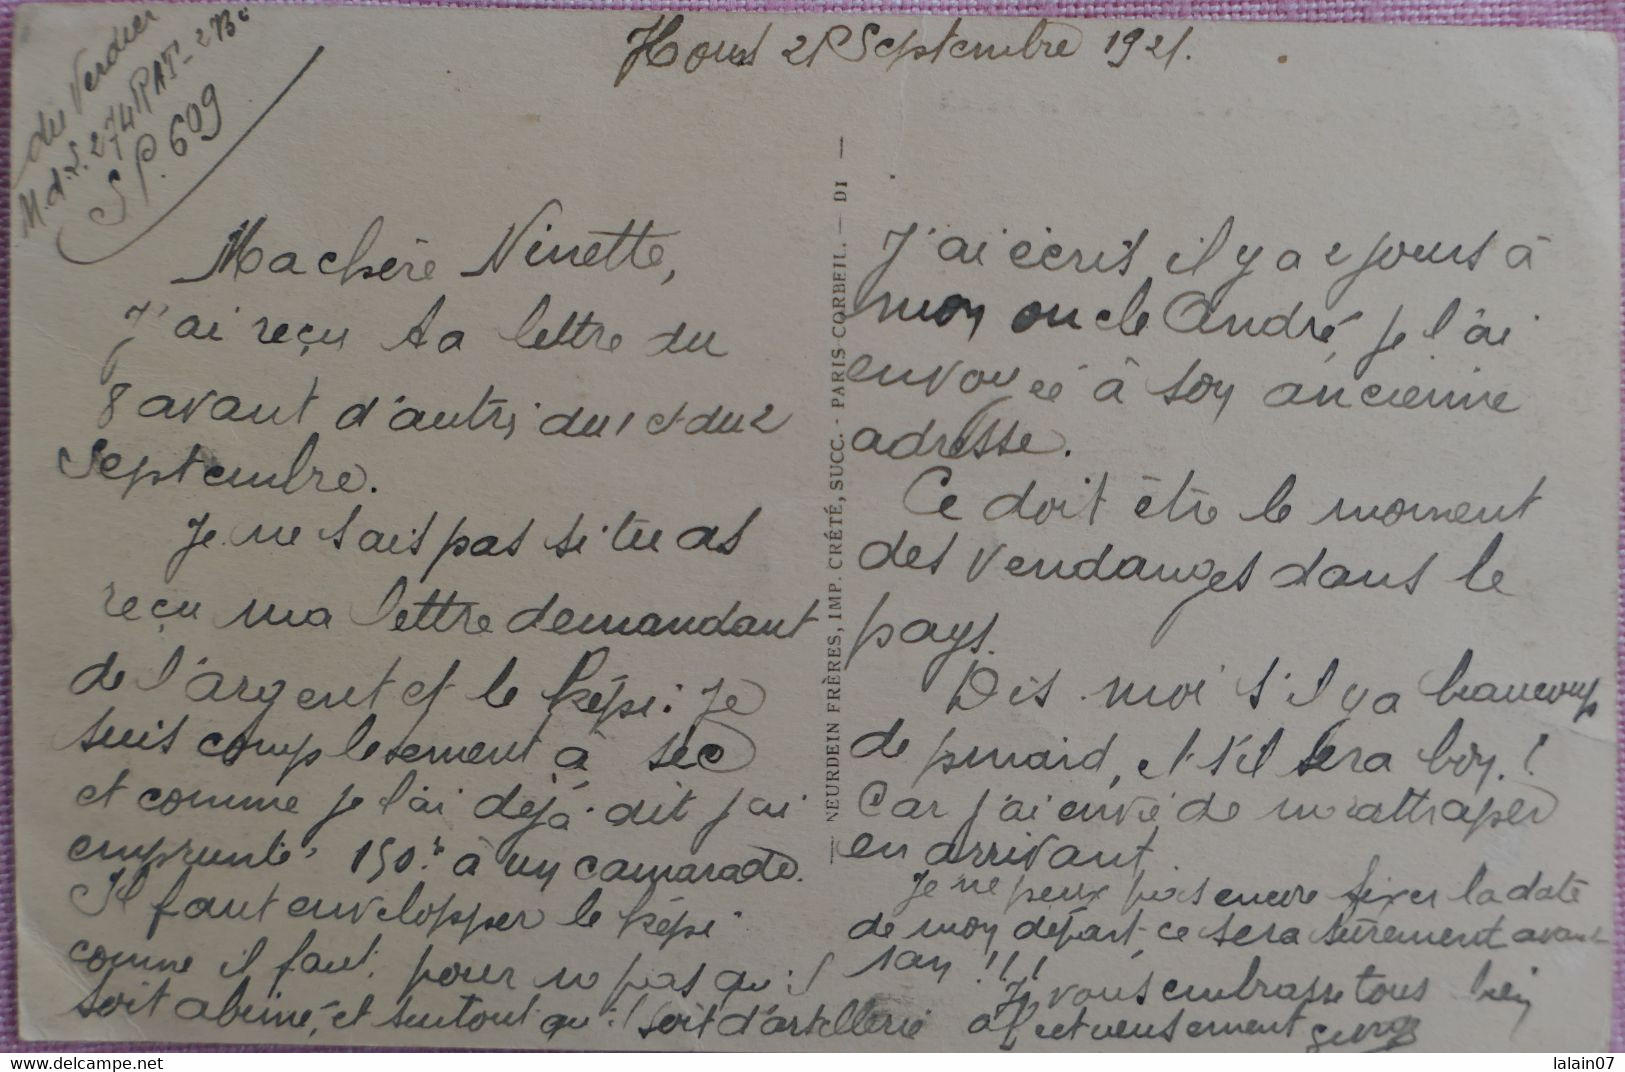 du Verdier
M.d.L. 274 RAT - 2Bie
S.P. 609
Homs 21 Septembre 1921.
Ma chère Ninette,
J'ai reçu ta lettre du
8 avant d'autrs du 1 et du 2
Septembre.
Je ne sais pas si tu as
reçu ma lettre demandant
de l'argent et le képi. Je
suis complesement à sec
et comme je l'ai déjà dit j'ai
emprunté 150 frs à un camarade.
Il faut envelopper le képi
comme il faut, pour no pas qu'il
soit abimé, et surtout qu'il soit d'artellerie
NEURDEIN FRÈRES, IMP. CRÉTÉ, SUCC. - PARIS-CORBEIL. — DI —
J'ai écris il y a 2 jours à
mon oncle André, je l'ai
envoyé à son ancienne
adresse.
Ce doit être le moment
des vendanges dans le
pays.
Dis-moi s'il y a beaucoup
de pinard, et s'il sera bon. !
Car j'ai envie de m rattraper
en arrivant.
Je ne peux pas encore fixer la date
de mon départ, ce sera sûrement avant
1 an !!!
Je vous embrasse tous bien
affectueusement
www.delcampe.net
lalain07